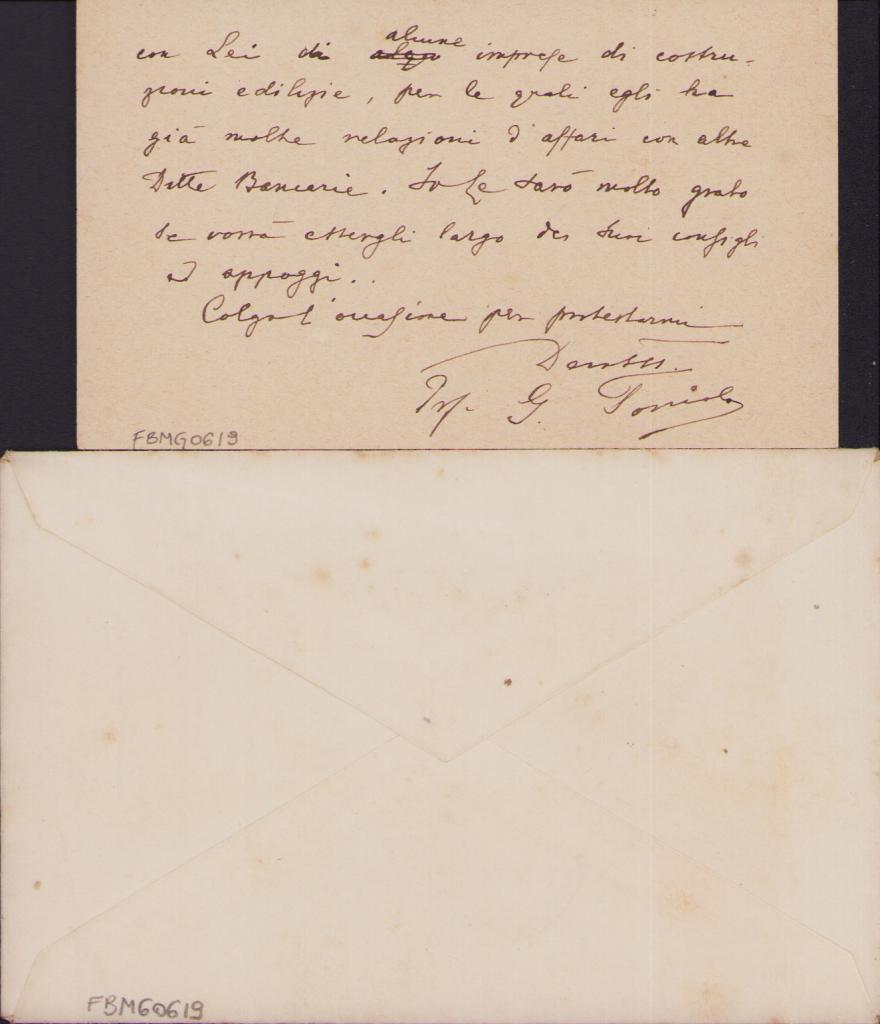 con Lei di alcune imprese di costru-
zioni edilizie, per le quali egli ha
già molte relazioni d'affari con altre
Ditte Bancarie. Io Le sarò molto grato
se vorrà essergli largo dei suoi consigli
ed appoggi..
Colgo l'occasione per protestarmi
Devotss.
Prof. G. Toniolo
FBMG0619
FBMG0619